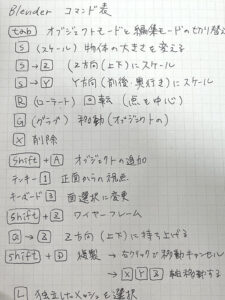 Blender コマンド表
tab オブジェクトモードと編集モードの切り替え
S (スケール) 物体の大きさを変える
S → Z (Z方向(上下)にスケール
S → Y Y方向(前後・奥行き)にスケール
R (ローテート) 回転 (点を中心)
G (グラブ) 移動 (オブジェクトの)
X 削除
Shift + A オブジェクトの追加
テンキー 1 正面からの視点
キーボード 3 面選択に変更
Shift + Z ワイヤーフレーム
G → Z Z方向(上下)に持ち上げる
Shift + D 複製 → 右クリックで移動キャンセル
→ X Y Z 軸移動する
L 独立したメッシュを選択